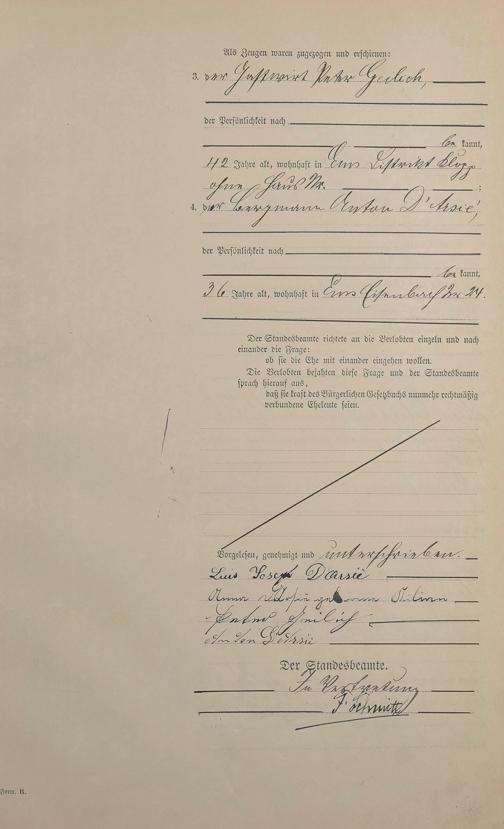 Als Zeugen waren zugezogen und erschienen:
3. der Gastwirt Peter Geilich,
der Persönlichkeit nach
be kannt,
42 Jahre alt, wohnhaft in Ems Distrikt Klopp
ohne Haus Nr. ;
4. der Bergmann Anton D'Arsié,
der Persönlichkeit nach
be kannt,
36 Jahre alt, wohnhaft in Ems Eisenbach Nr 24.
Der Standesbeamte richtete an die Verlobten einzeln und nach
einander die Frage:
ob sie die Ehe mit einander eingehen wollen.
Die Verlobten bejahten diese Frage und der Standesbeamte
sprach hierauf aus,
daß sie kraft des Bürgerlichen Gesetzbuchs nunmehr rechtmäßig
verbundene Eheleute seien.
Vorgelesen, genehmigt und unterschrieben.
Luis Joseph Darsié
Anna geborene Kilian
Peter Geilich
Anton Darsie
Der Standesbeamte.
In Vertretung
F Schmitt
Form. B.